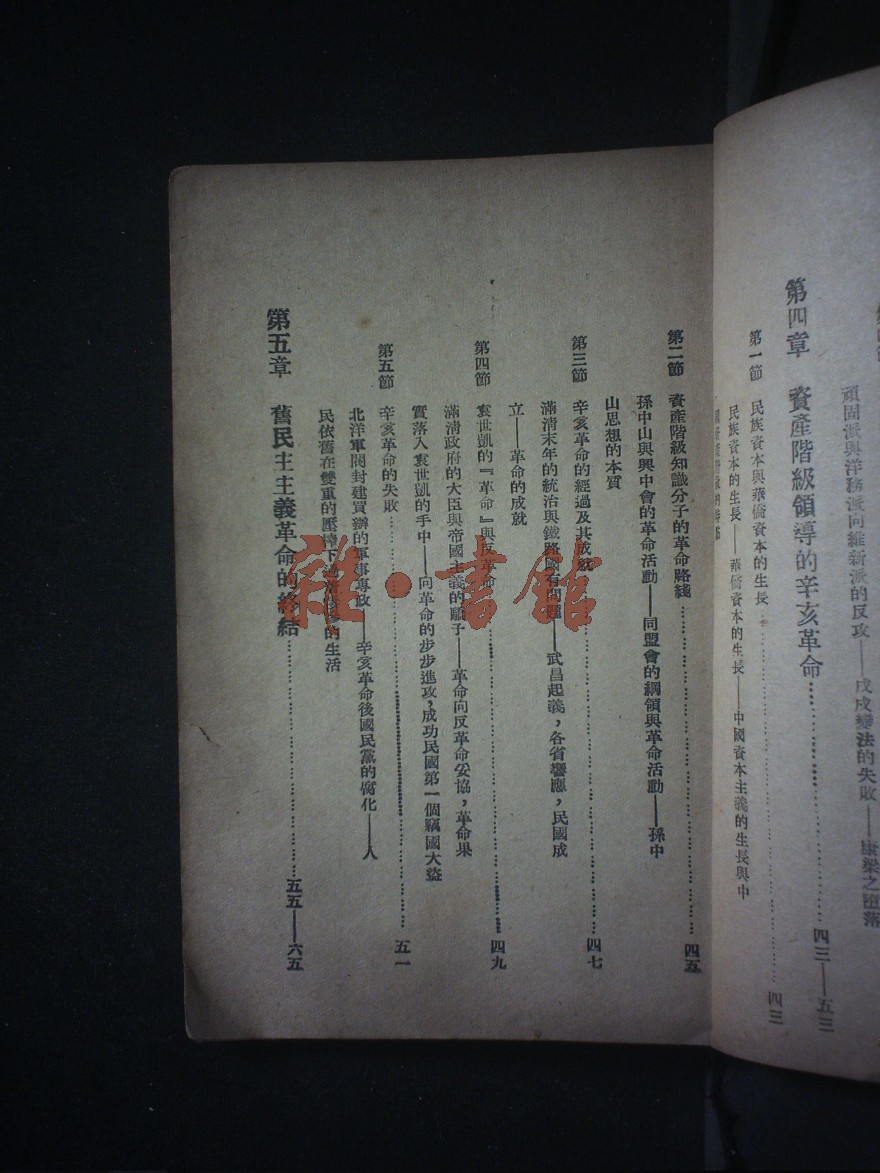 頑固派與洋務派向維新派的反攻——戊戌變法的失敗——康梁之墮落
第四章 資產階級領導的辛亥革命……四三——五三
第一節 民族資本與華僑資本的生長……四三
民族資本的生長——華僑資本的生長——中國資本主義的生長與中
第二節 資產階級知識分子的革命路綫……四五
孫中山與興中會的革命活動——同盟會的綱領與革命活動——孫中
山思想的本質
第三節 辛亥革命的經過及其成就……四七
滿清末年的統治與鐵路國有問題——武昌起義，各省響應，民國成
立——革命的成就
第四節 袁世凱的『革命』與反革命……四九
滿清政府的大臣與帝國主義的驕子——革命向反革命妥協，革命果
實落入袁世凱的手中——向革命的步步進攻，成功民國第一個竊國大盜
第五節 辛亥革命的失敗……五一
北洋軍閥封建買辦的軍事專政——辛亥革命後國民黨的腐化——人
民依舊在雙重的壓搾下過的生活
第五章 舊民主主義革命的終結……五五——六五
雜·書館